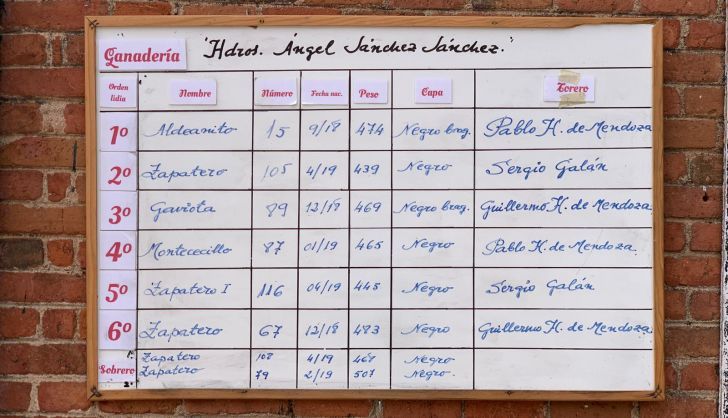 Ganadería "Hdros. Ángel Sánchez Sánchez."
Orden lidia Nombre Número Fecha nac. Peso Capa Torero
1º Aldeanito 15 9/18 474 Negro brag. Pablo H. de Mendoza
2º Zapatero 105 4/19 439 Negro Sergio Galán
3º Gaviota 89 12/18 469 Negro brag. Guillermo H. de Mendoza
4º Montececillo 87 01/19 465 Negro Pablo H. de Mendoza
5º Zapatero I 116 04/19 445 Negro Sergio Galán
6º Zapatero 67 12/18 483 Negro Guillermo H. de Mendoza
Sobrero 1º Zapatero 108 4/19 467 Negro
2º Zapatero 79 2/19 507 Negro.